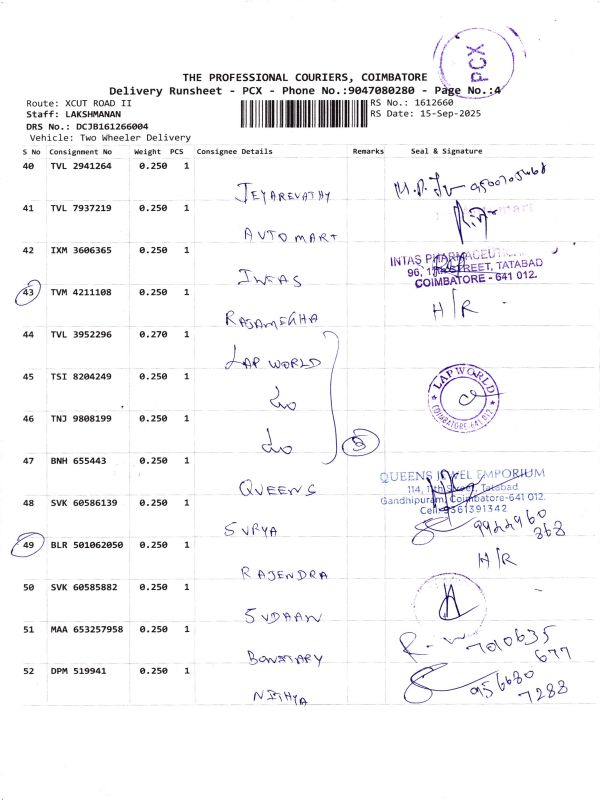 PCX
THE PROFESSIONAL COURIERS, COIMBATORE
Delivery Runsheet - PCX - Phone No.:9047080280 - Page No.:4
Route: XCUT ROAD II
RS No.: 1612660
Staff: LAKSHMANAN
RS Date: 15-Sep-2025
DRS No.: DCJB161266004
Vehicle: Two Wheeler Delivery
S No Consignment No Weight PCS Consignee Details Remarks Seal & Signature
40 TVL 2941264 0.250 1
JEYAREVATHY
41 TVL 7937219 0.250 1
AUTO MART
42 IXM 3606365 0.250 1
INTAS
INTAS PHARMACEUTI
96, 11th STREET, TATABAD
COIMBATORE - 641 012.
43 TVM 4211108 0.250 1
RAJAMEGHA
H/R
44 TVL 3952296 0.270 1
LAP WORLD
45 TSI 8204249 0.250 1
LAP WORLD
COIMBATORE-641 012
46 TNJ 9808199 0.250 1
3
47 BNH 655443 0.250 1
QUEENS
QUEENS JEWEL EMPORIUM
114, 11th Street, Tatabad
Gandhipuram, Coimbatore-641 012.
Cell: 9361391342
48 SVK 60586139 0.250 1
SURYA
9944960
868
49 BLR 501062050 0.250 1
RAJENDRA
H/R
50 SVK 60585882 0.250 1
SUDAAN
51 MAA 653257958 0.250 1
7010635
677
52 DPM 519941 0.250 1
NITHYA
956680
7288